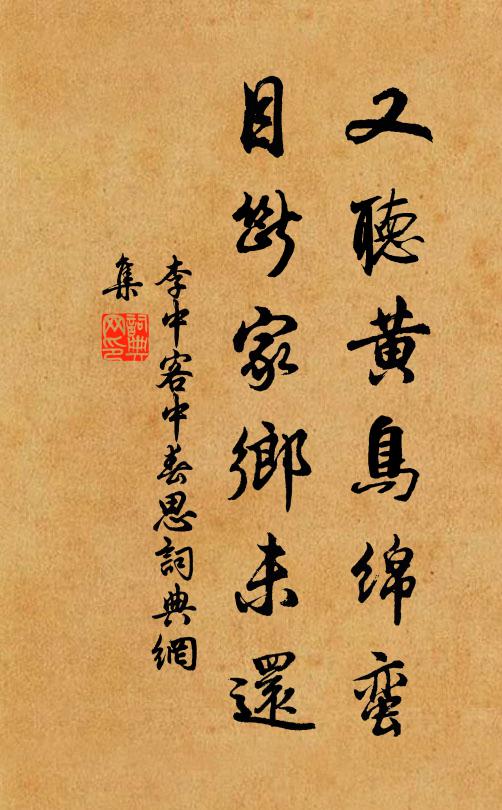 又聽黄鳥綿蠻
目斷家鄉未還
李中客中春思詞典網
集
詞典网印